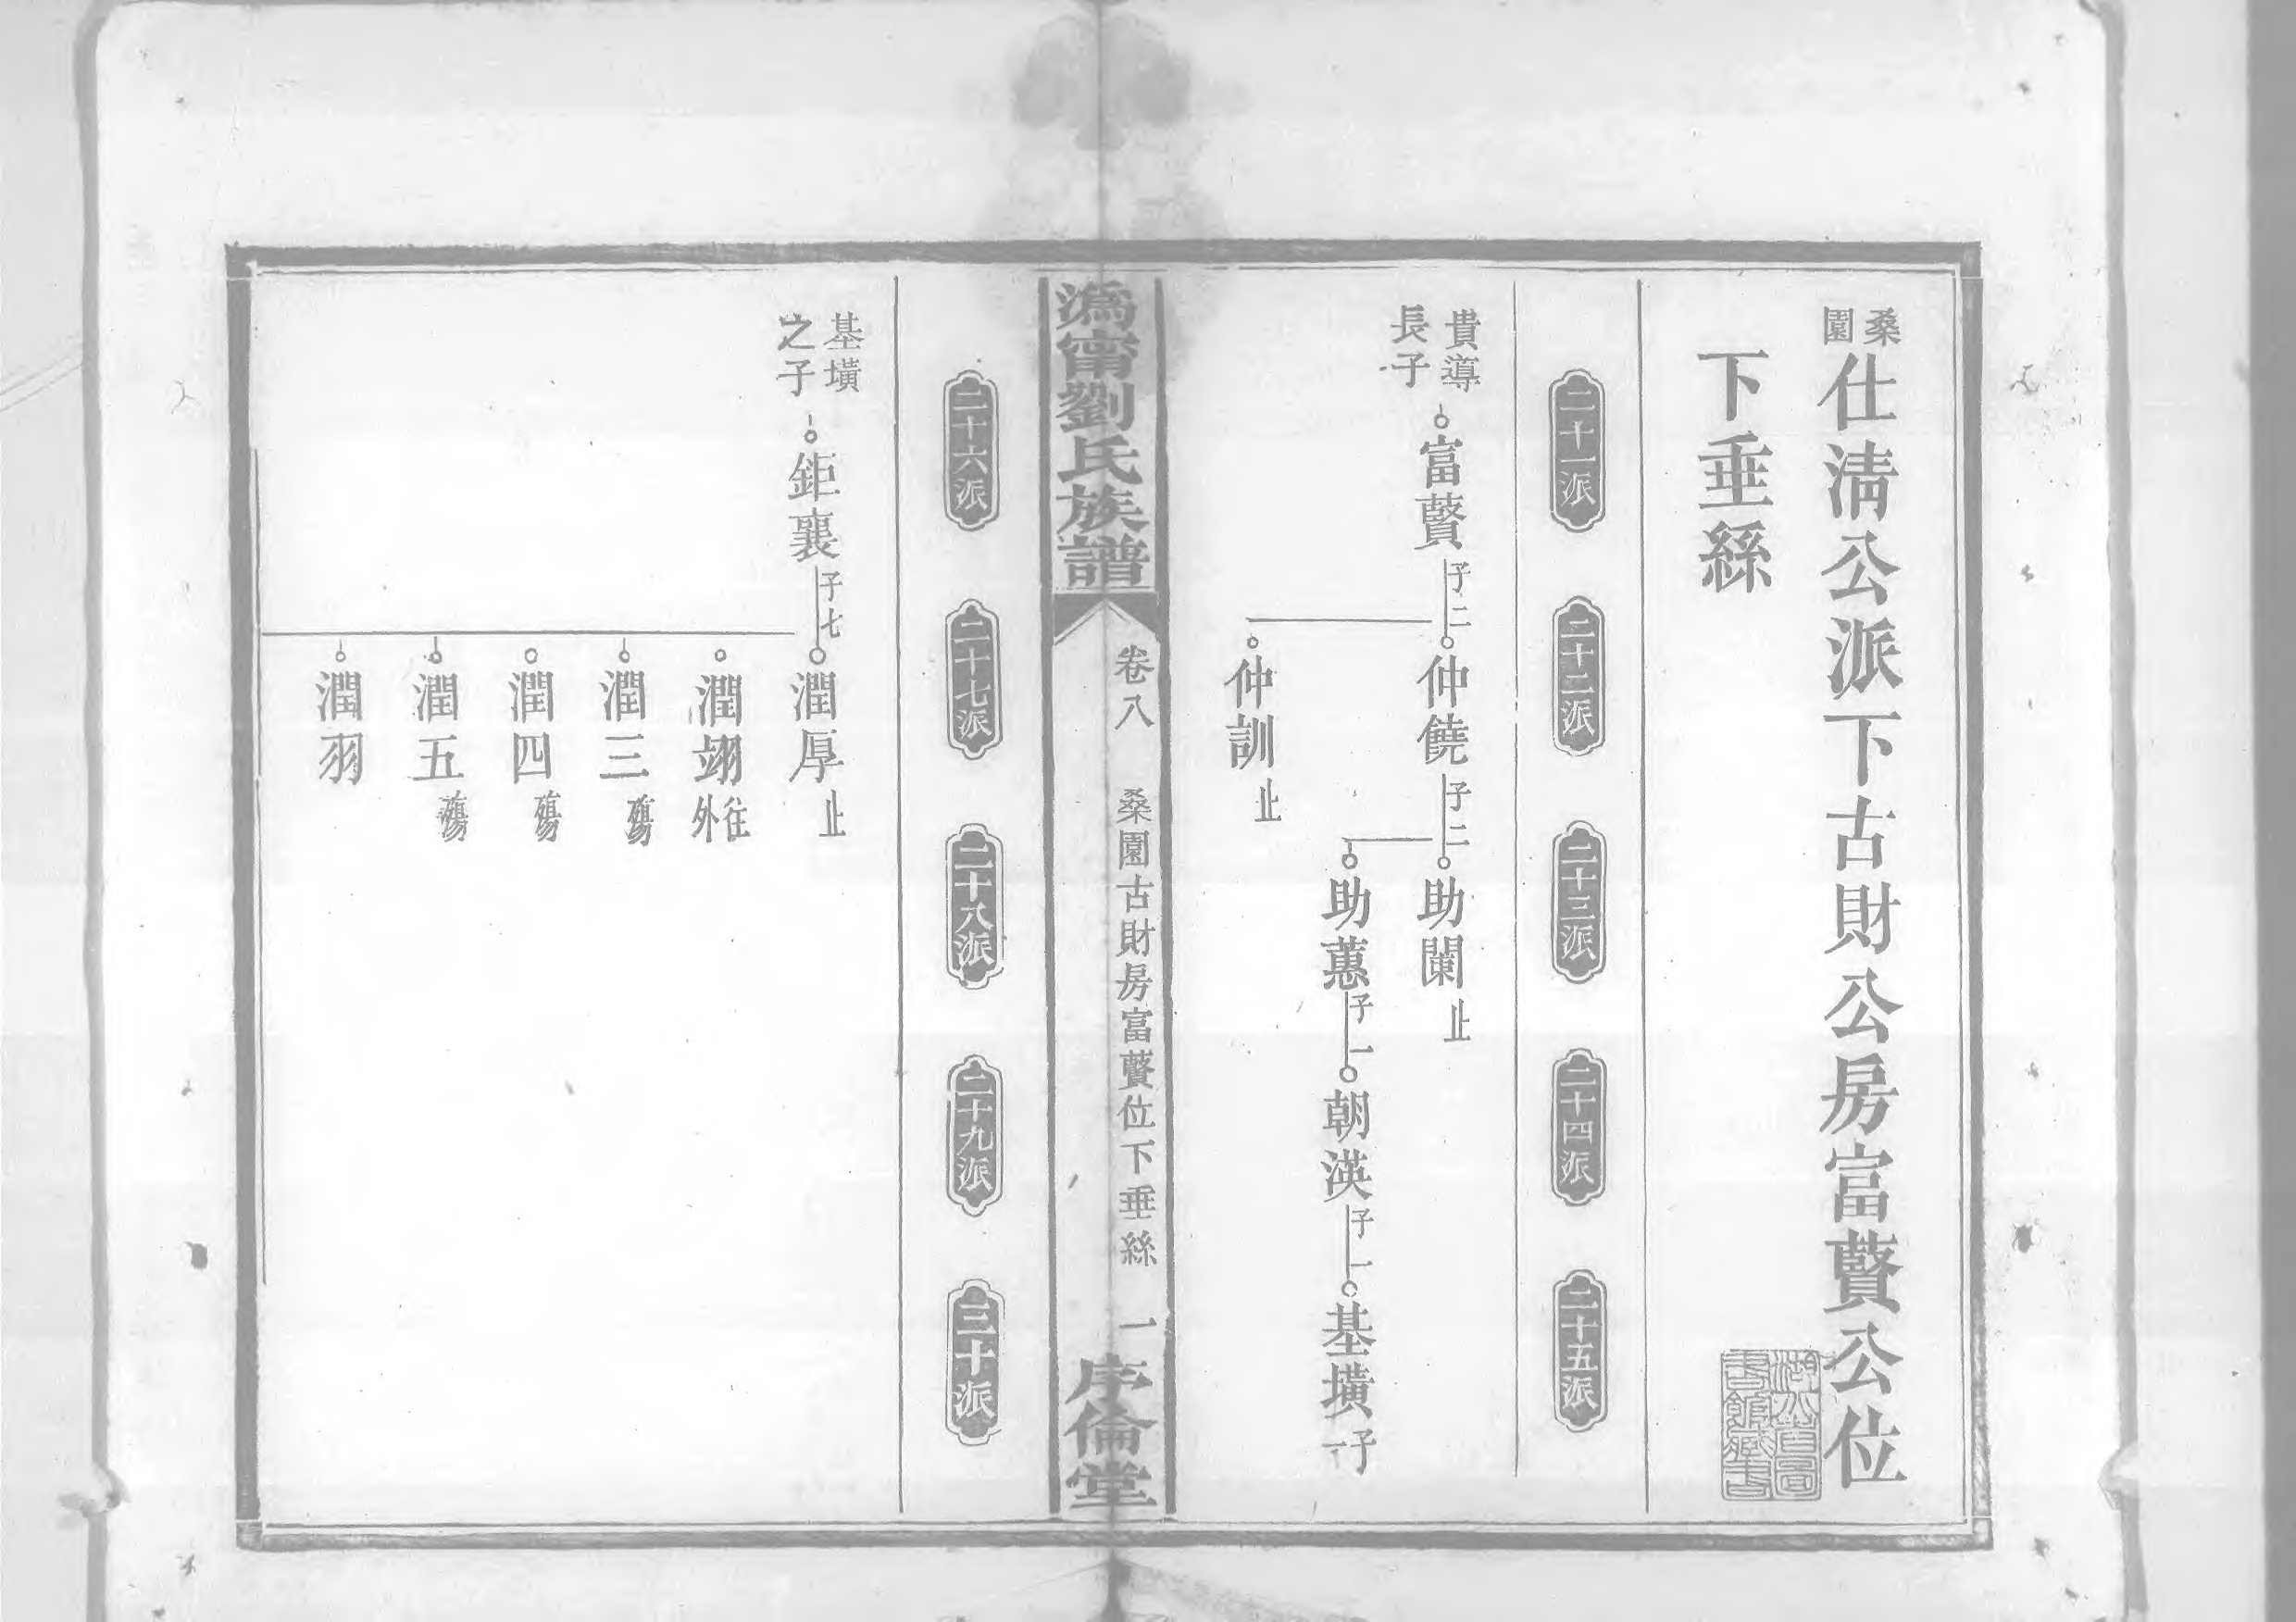 桑園
仕清公派下古財公房富贒公位
下垂絲
二十一派
二十二派
二十三派
二十四派
二十五派
貴導
長子
富贒
子二
仲饒
子二
助闌
止
助蕙
子一
朝渶
子一
基墴
子一
仲訓
止
溈甯劉氏族譜
卷八
桑園古財房富贒位下垂絲
一
序倫堂
二十六派
二十七派
二十八派
二十九派
三十派
基墴
之子
鉅襄
子七
潤厚
止
潤翊
往外
潤三
殤
潤四
殤
潤五
殤
潤羽